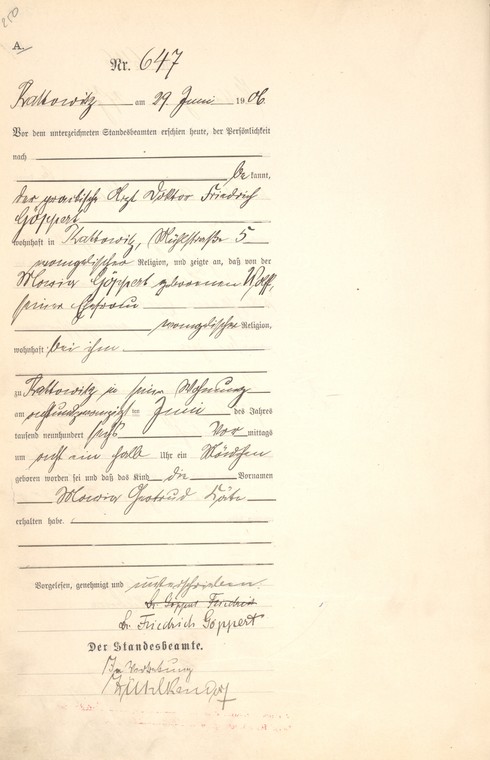 250
A.
Nr. 647
Kattowitz am 29 Juni 1906.
Vor dem unterzeichneten Standesbeamten erschien heute, der Persönlichkeit
nach
be kannt,
der praktische Arzt Doktor Friedrich
Göppert
wohnhaft in Kattowitz, Mühlstraße 5
evangelischer Religion, und zeigte an, daß von der
Maria Göppert geborenen Wolff,
seiner Ehefrau
evangelischer Religion,
wohnhaft bei ihm
zu Kattowitz in seiner Wohnung
am achtundzwanzigsten Juni des Jahres
tausend neunhundert sechs Vor mittags
um acht ein halb Uhr ein Mädchen
geboren worden sei und daß das Kind die Vornamen
Maria Gertrud Käte
erhalten habe.
Vorgelesen, genehmigt und unterschrieben.
Dr. Göppert Friedrich
Dr. Friedrich Göppert
Der Standesbeamte.
In Vertretung